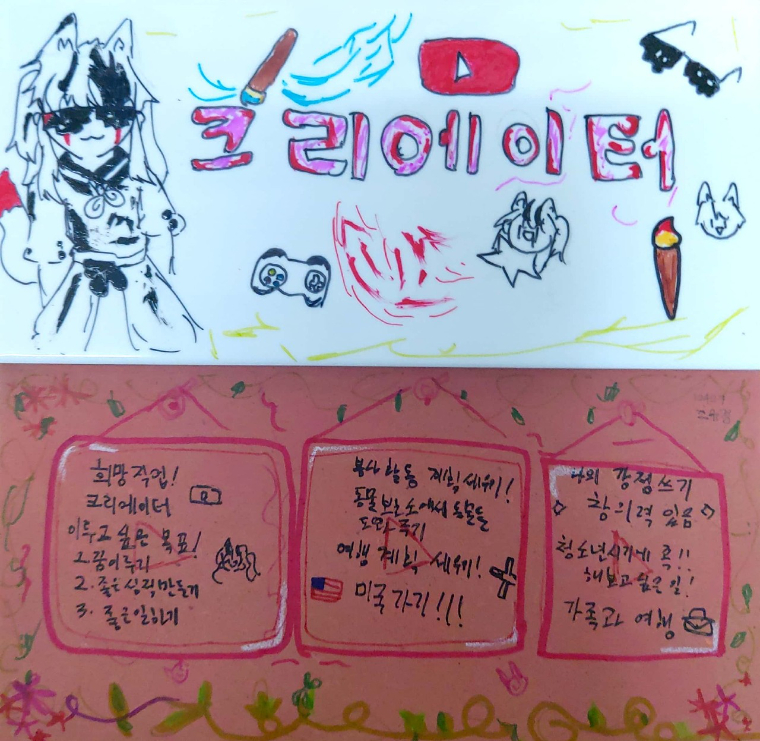 크리에이터
희망직업!
크리에이터
이루고 싶은 목표!
1. 꿈이루기
2. 좋은 실력만들기
3. 좋은일하기
봉사 활동 계획세우기!
동물보호소에서 동물들
도와주기
여행 계획 세우기!
미국가기!!!
나의 강점쓰기
창의력 있음
청소년시기에 꼭!!
해보고 싶은 일!
가족과 여행